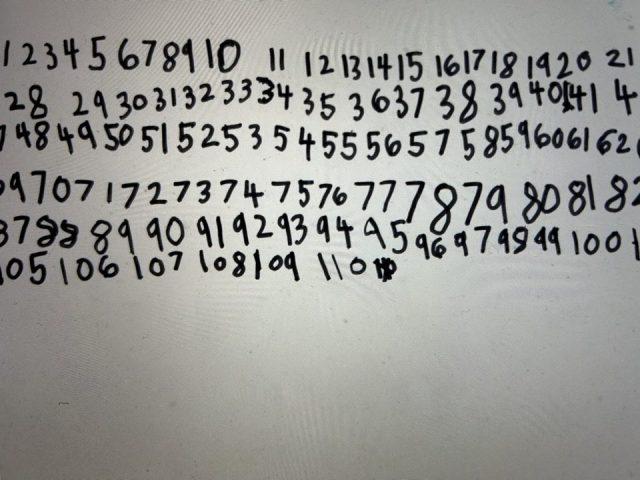 1 2 3 4 5 6 7 8 9 10 11 12 13 14 15 16 17 18 19 20 21
28 29 30 31 32 33 34 35 36 37 38 39 40 41 4
48 49 50 51 52 53 54 55 56 57 58 59 60 61 62
9 70 71 72 73 74 75 76 77 78 79 80 81 82
87 88 89 90 91 92 93 94 95 96 97 98 99 100 1
105 106 107 108 109 110